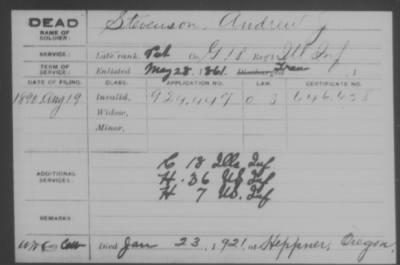 DEAD
NAME OF SOLDIER:
Stevenson, Andrew J
SERVICE:
Late rank, Pvt Co. G 18 Reg't US Inf
TERM OF SERVICE:
Enlisted May 28, 1861. Discharged Tran , 1
DATE OF FILING. CLASS. APPLICATION NO. LAW. CERTIFICATE NO.
1890 Aug 19 Invalid,
Widow,
Minor,
C 18 Ills Inf
ADDITIONAL SERVICES:
H. 36 US Inf
H 7 US. Inf
REMARKS:
Died Jan 23, 1921, at Heppner, Oregon.